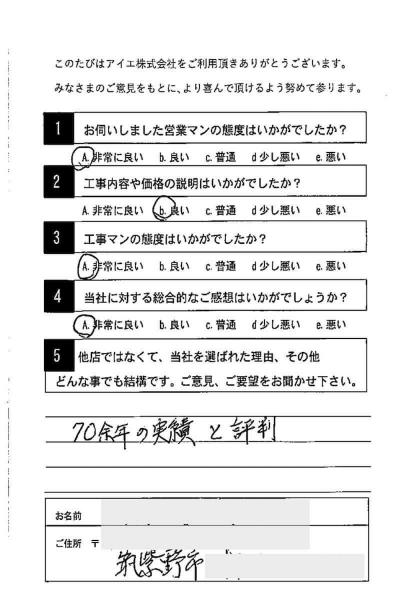 このたびはアイエ株式会社をご利用頂きありがとうございます。
みなさまのご意見をもとに、より喜んで頂けるよう努めて参ります。
1 お伺いしました営業マンの態度はいかがでしたか？
A.非常に良い b.良い c.普通 d少し悪い e.悪い
2 工事内容や価格の説明はいかがでしたか？
A.非常に良い b.良い c.普通 d少し悪い e.悪い
3 工事マンの態度はいかがでしたか？
A.非常に良い b.良い c.普通 d少し悪い e.悪い
4 当社に対する総合的なご感想はいかがでしょうか？
A.非常に良い b.良い c.普通 d少し悪い e.悪い
5 他店ではなくて、当社を選ばれた理由、その他
どんな事でも結構です。ご意見、ご要望をお聞かせ下さい。
70余年の実績と評判
お名前
ご住所 〒
筑紫野市